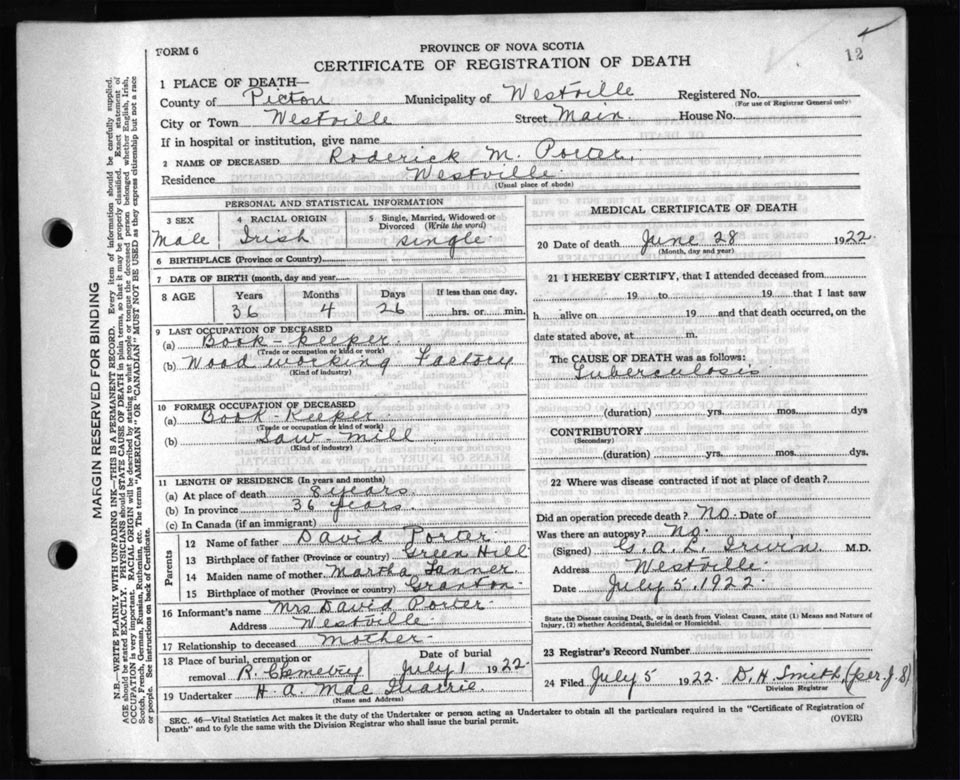 FORM 6
PROVINCE OF NOVA SCOTIA
CERTIFICATE OF REGISTRATION OF DEATH
12
1 PLACE OF DEATH—
County of Pictou Municipality of Westville Registered No.
(For use of Registrar General only)
City or Town Westville Street Main. House No.
If in hospital or institution, give name
2 NAME OF DECEASED Roderick M. Porter.
Residence Westville
(Usual place of abode)
PERSONAL AND STATISTICAL INFORMATION
3 SEX Male
4 RACIAL ORIGIN Irish
5 Single, Married, Widowed or Divorced (Write the word) single
6 BIRTHPLACE (Province or Country)
7 DATE OF BIRTH (month, day and year)
8 AGE Years Months Days If less than one day,
36 4 26 hrs. or min.
9 LAST OCCUPATION OF DECEASED
(a) Book-keeper.
(Trade or occupation or kind or work)
(b) Wood working Factory
(Kind of industry)
10 FORMER OCCUPATION OF DECEASED
(a) Book-Keeper.
(Trade or occupation or kind of work)
(b) Saw-mill
(Kind of industry)
11 LENGTH OF RESIDENCE (In years and months)
(a) At place of death 8 years.
(b) In province 36 years.
(c) In Canada (if an immigrant)
Parents
12 Name of father David Porter.
13 Birthplace of father (Province or country) Green Hill
14 Maiden name of mother Martha Tanner
15 Birthplace of mother (Province or country) Granton
16 Informant's name Mrs David Porter
Address Westville
17 Relationship to deceased Mother
18 Place of burial, cremation or removal R. Cemetry
Date of burial July 1 1922.
19 Undertaker H. A. Mac
(Name and Address)
MEDICAL CERTIFICATE OF DEATH
20 Date of death June 28 1922.
(Month, day and year)
21 I HEREBY CERTIFY, that I attended deceased from
19 to 19 that I last saw
h alive on 19 and that death occurred, on the
date stated above, at m.
The CAUSE OF DEATH was as follows:
Tuberculosis
(duration) yrs. mos. dys
CONTRIBUTORY
(Secondary)
(duration) yrs. mos. dys.
22 Where was disease contracted if not at place of death?
Did an operation precede death? No. Date of
Was there an autopsy? No.
(Signed) G. A. L. Irwin. M.D.
Address Westville
Date July 5. 1922.
State the Disease causing Death, or in death from Violent Causes, state (1) Means and Nature of Injury, (2) whether Accidental, Suicidal or Homicidal.
23 Registrar's Record Number
24 Filed July 5 1922. D. H. Smith (per J. S)
Division Registrar
SEC. 46—Vital Statistics Act makes it the duty of the Undertaker or person acting as Undertaker to obtain all the particulars required in the "Certificate of Registration of
Death" and to fyle the same with the Division Registrar who shall issue the burial permit.
(OVER)
MARGIN RESERVED FOR BINDING
N.B.—WRITE PLAINLY WITH UNFADING INK—THIS IS A PERMANENT RECORD. Every item of information should be carefully supplied.
AGE should be stated EXACTLY. PHYSICIANS should STATE CAUSE OF DEATH in plain terms, so that it may be properly classified. Exact statement of
OCCUPATION is very important. RACIAL ORIGIN will be described by stating to what people or tongue the deceased person belonged whether English, Irish,
Scotch, French, German, Russian, Ruthenian, etc. The terms "AMERICAN" OR "CANADIAN" MUST NOT BE USED as they express citizenship but not a race
or people. See instructions on back of Certificate.